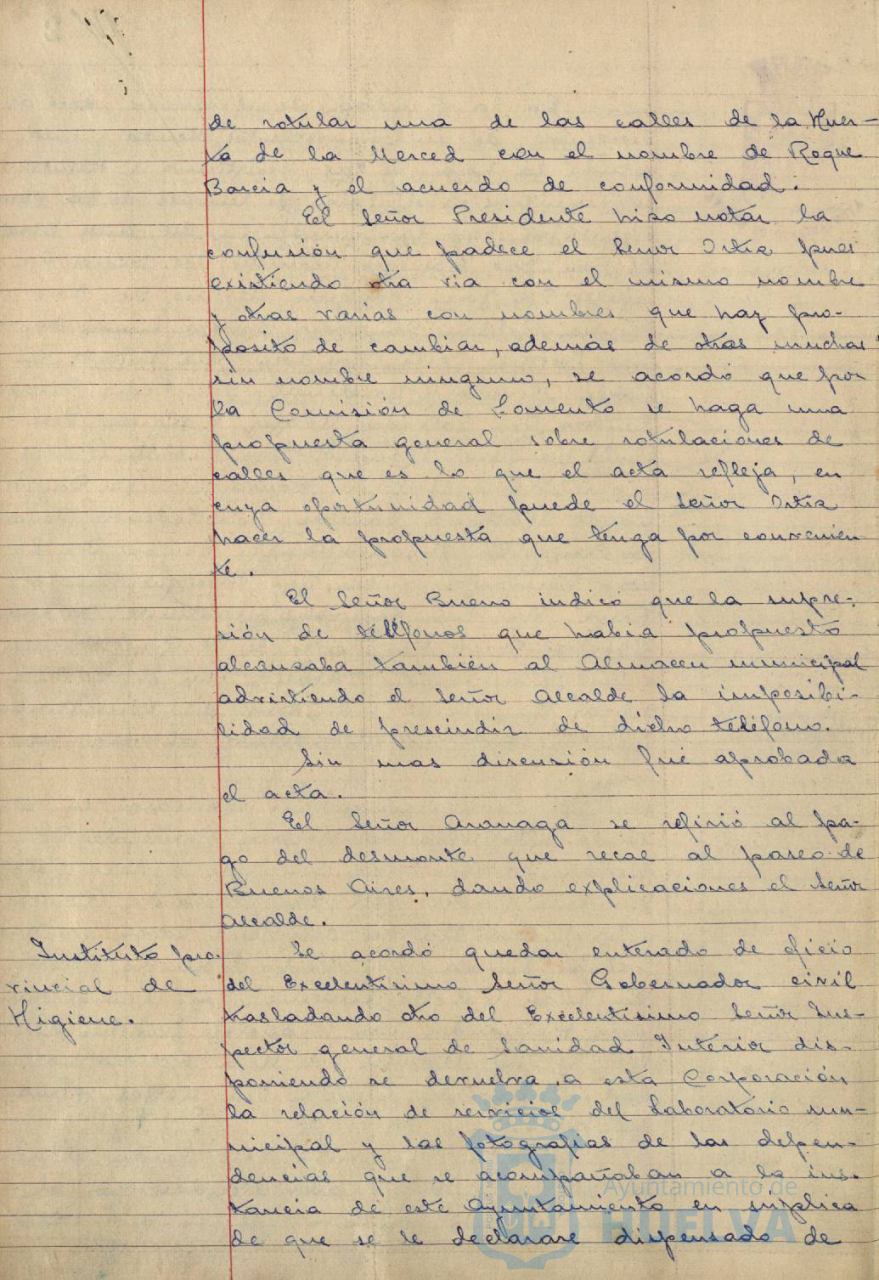 de rotular una de las calles de la Huer-
ta de la Merced con el nombre de Roque
Barcia y el acuerdo de conformidad.
El Señor Presidente hizo notar la
confusión que padece el Señor Ortiz pues
existiendo otra via con el mismo nombre
y otras varias con nombres que hay pro-
posito de cambiar, además de otras muchas
sin nombre ninguno, se acordó que por
la Comisión de Fomento se haga una
propuesta general sobre rotulaciones de
calles que es lo que el acta refleja, en
cuya oportunidad puede el Señor Ortiz
hacer la propuesta que tenga por convenien
te.
El Señor Bueno indicó que la supre-
sión de teléfonos que habia propuesto
alcanzaba también al Almacen municipal
advirtiendo el Señor Alcalde la imposibi-
lidad de prescindir de dicho teléfono.
Sin mas discusión fué aprobada
el acta.
El Señor Aranaga se refirió al pa-
go del desmonte que recae al paseo de
Buenos Aires, dando explicaciones el Señor
Alcalde.
Instituto pro-
vincial de
Higiene.
Se acordó quedar enterado de oficio
del Excelentisimo Señor Gobernador civil
trasladando otro del Excelentisimo Señor Ins-
pector general de Sanidad Interior dis-
poniendo se devuelva a esta Corporación
la relación de servicios del Laboratorio mu-
nicipal y las fotografias de las depen-
dencias que se acompañaban a la ins-
tancia de este Ayuntamiento en suplica
de que se le declarare dispensado de
Ayuntamiento de
HUELVA